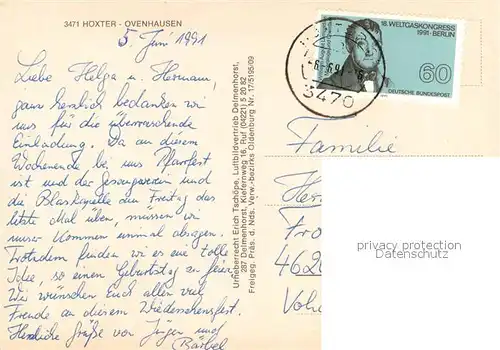 3471 HÖXTER - OVENHAUSEN
5. Juni 1991
Liebe Helga u. Hermann,
ganz herzlich bedanken wir
uns für die überraschende
Einladung. Da an diesem
Wochenende bei uns Pfarrfest
ist und der Gesangverein und
die Blaskapelle am Freitag das
letzte Mal üben, müssen wir
unser Kommen einmal absagen.
Trotzdem finden wir es eine tolle
Idee, so einen Geburtstag zu feiern.
Wir wünschen Euch allen viel
Freude an diesem Wiedersehensfest.
Herzliche Grüße von Jürgen und
Bärbel
Urheberrecht Erich Tschöpe, Luftbildvertrieb Delmenhorst,
287 Delmenhorst, Kiefernweg 16, Ruf (04221) 5 20 82
Freigeg. Präs. d. Nds. Verw. Bezirks Oldenburg Nr. 17/5195/09
18. WELTGASKONGRESS
1991 · BERLIN
60
DEUTSCHE BUNDESPOST
3470
Familie
Her
Fro
462
Vohe
privacy protection
Datenschutz